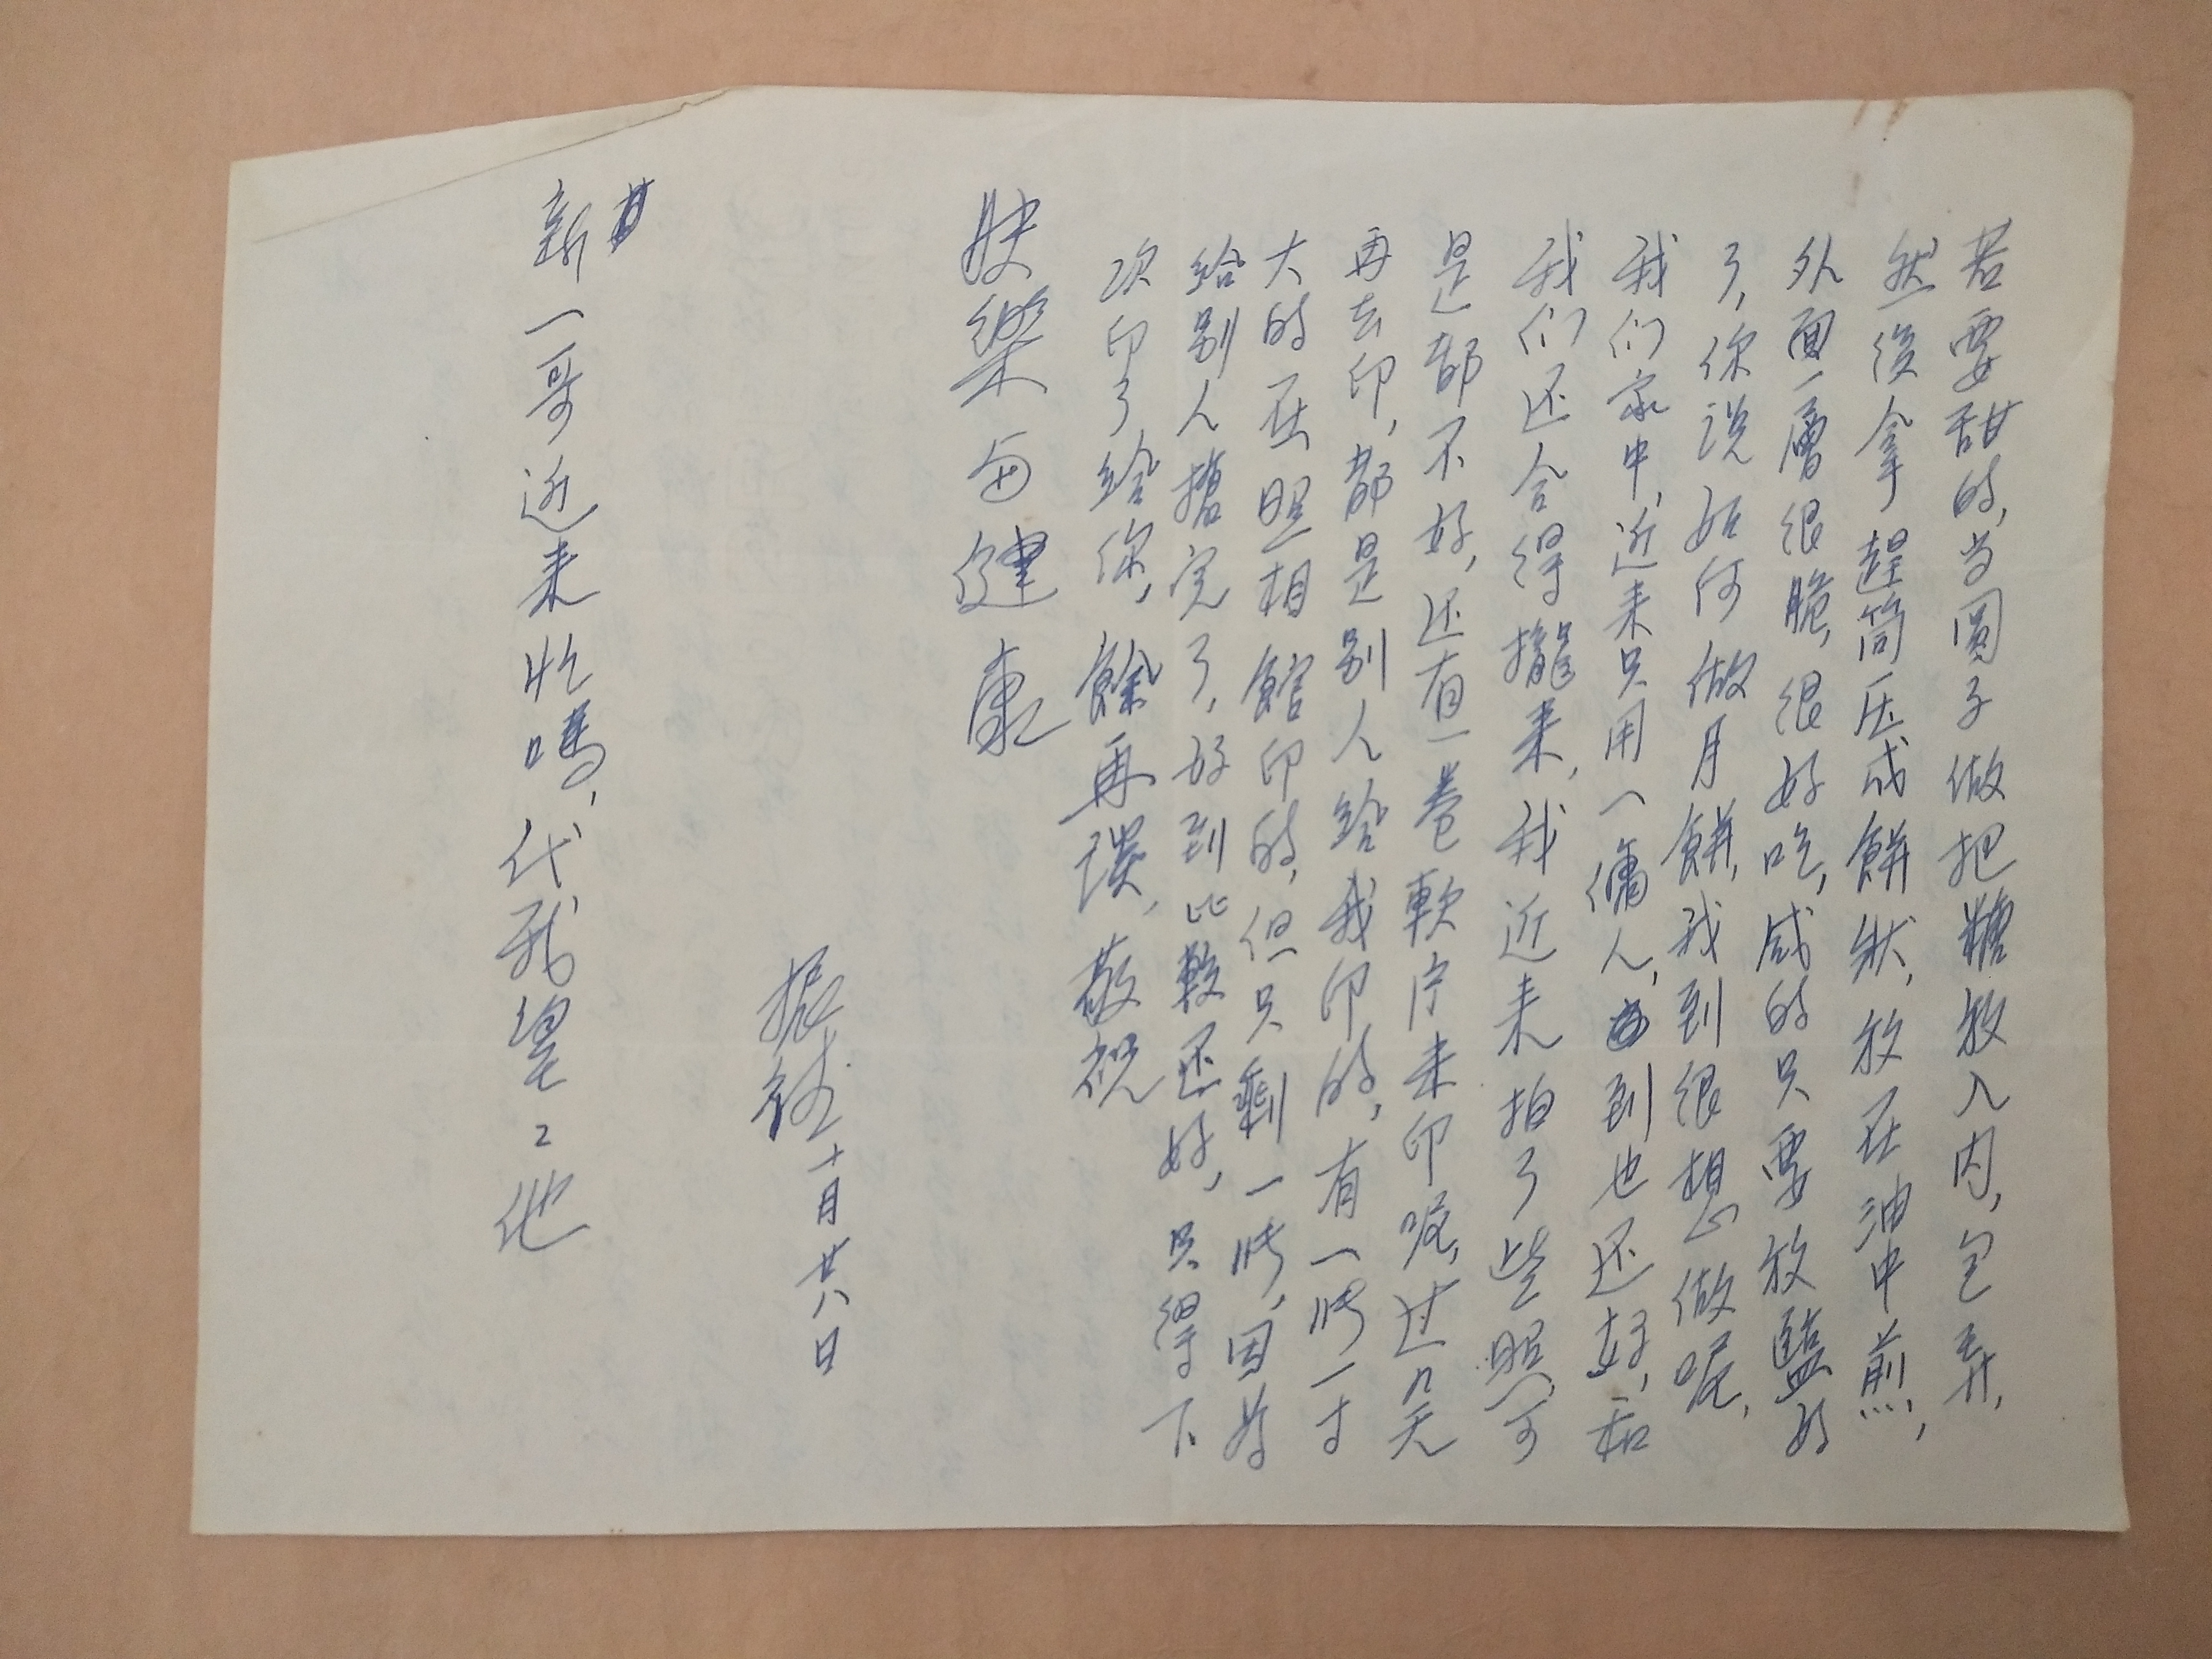 若要甜的,当圆子做把糖放入内,包弄,
然後拿趕筒压成餅状,放在油中煎,
外面一層很脆,很好吃,咸的只要放鹽好
了,你说如何做月餅,我到很想做呢,
我们家中,近来只用一傭人,到也还好,和
我们还合得攏来,我近来拍了些照,可
是都不好,还有一卷軟片未印呢,过几天
再去印,都是别人给我印的,有一张一寸
大的在照相館印的,但只剩一张,因为
给别人搶完了,好到比較还好,只得下
次印了给你,餘再談,敬祝
快樂与健康
振 十月廿八日
新一哥近来忙嗎,代我望〻他